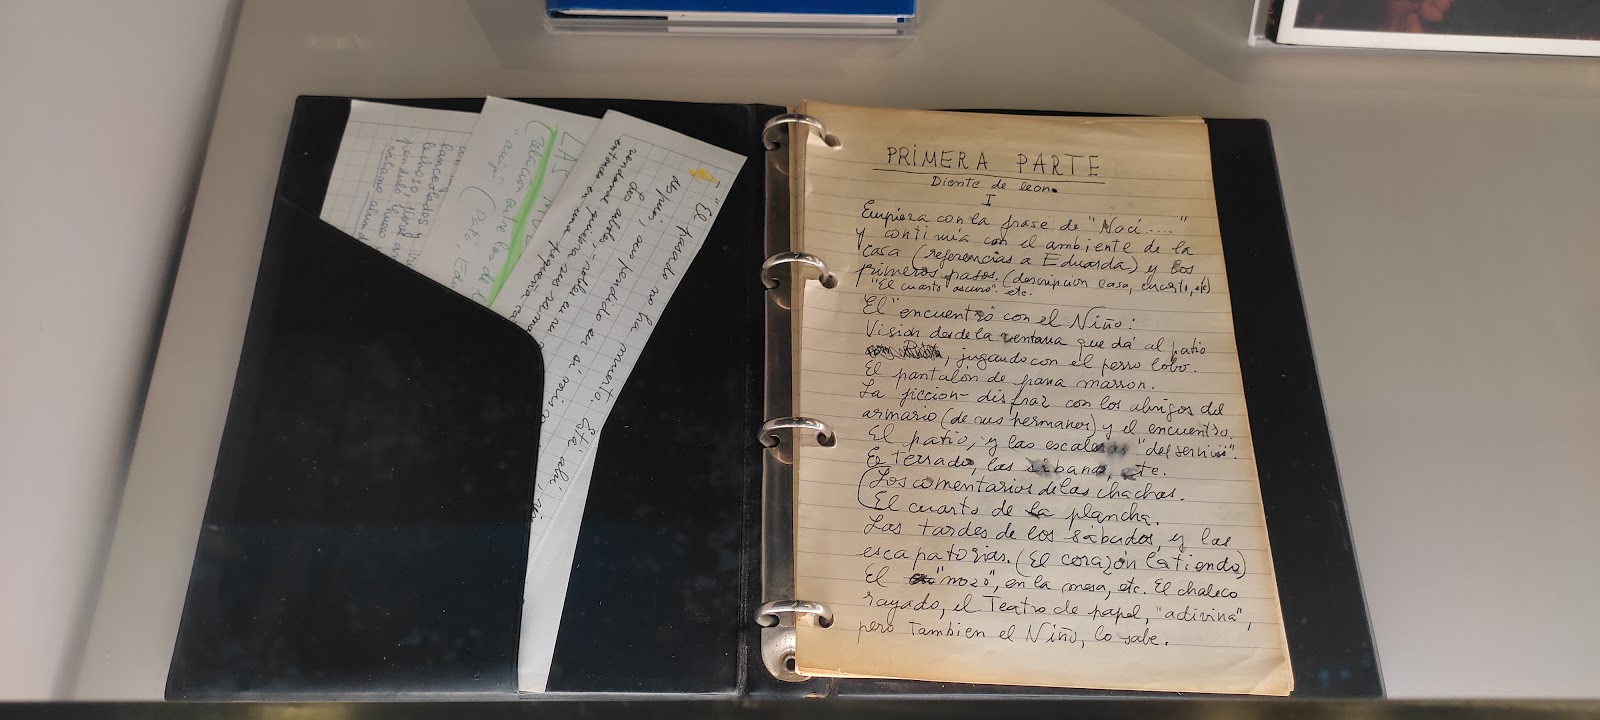 lanceolados y
lechoso, pue
péndulo hueco
LAS
(relación entre los de
"aurigi" (Pató, Ed
"El pasado no ha muerto. Está ahí,
después, suspendido en
des arboles, nobles en su
vendaval quiebra sus ramas
entonces en una pequeña ca
PRIMERA PARTE
Diente de leon.
I
Empieza con la frase de "Nací....."
y continúa con el ambiente de la
casa (referencias a Eduarda) y los
primeros pasos. (descripcion casa, cuarto, etc)
"El cuarto oscuro". etc.
El "encuentro" con el Niño:
Vision desde la ventana que dá al patio
, jugando con el perro lobo.
El pantalón de pana marron.
La ficcion-disfraz con los abrigos del
armario (de sus hermanos) y el encuentro.
El patio, y las escaleras "del servicio".
El terrado, las sábanas, etc.
(Los comentarios de las chachas.
El cuarto de la plancha.
Las tardes de los sábados, y las
escapatorias. (El corazón latiendo)
El "mozo", en la mesa, etc. El chaleco
rayado, el Teatro de papel, "adivina",
pero tambien el Niño, lo sabe.